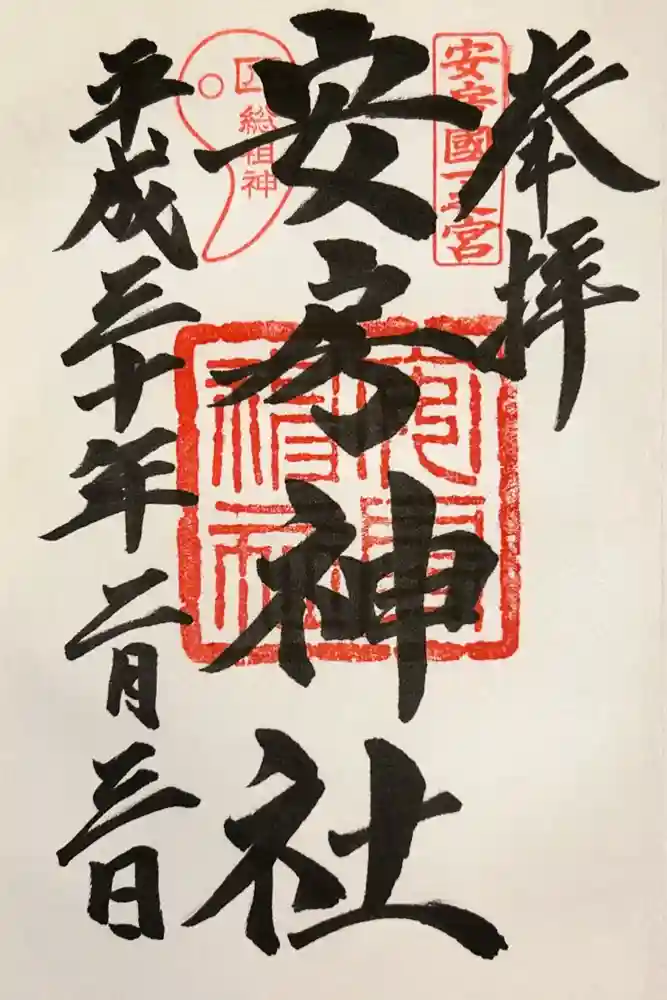 奉拝
安房國一之宮
安房神社
総祖神
平成三十年二月三日